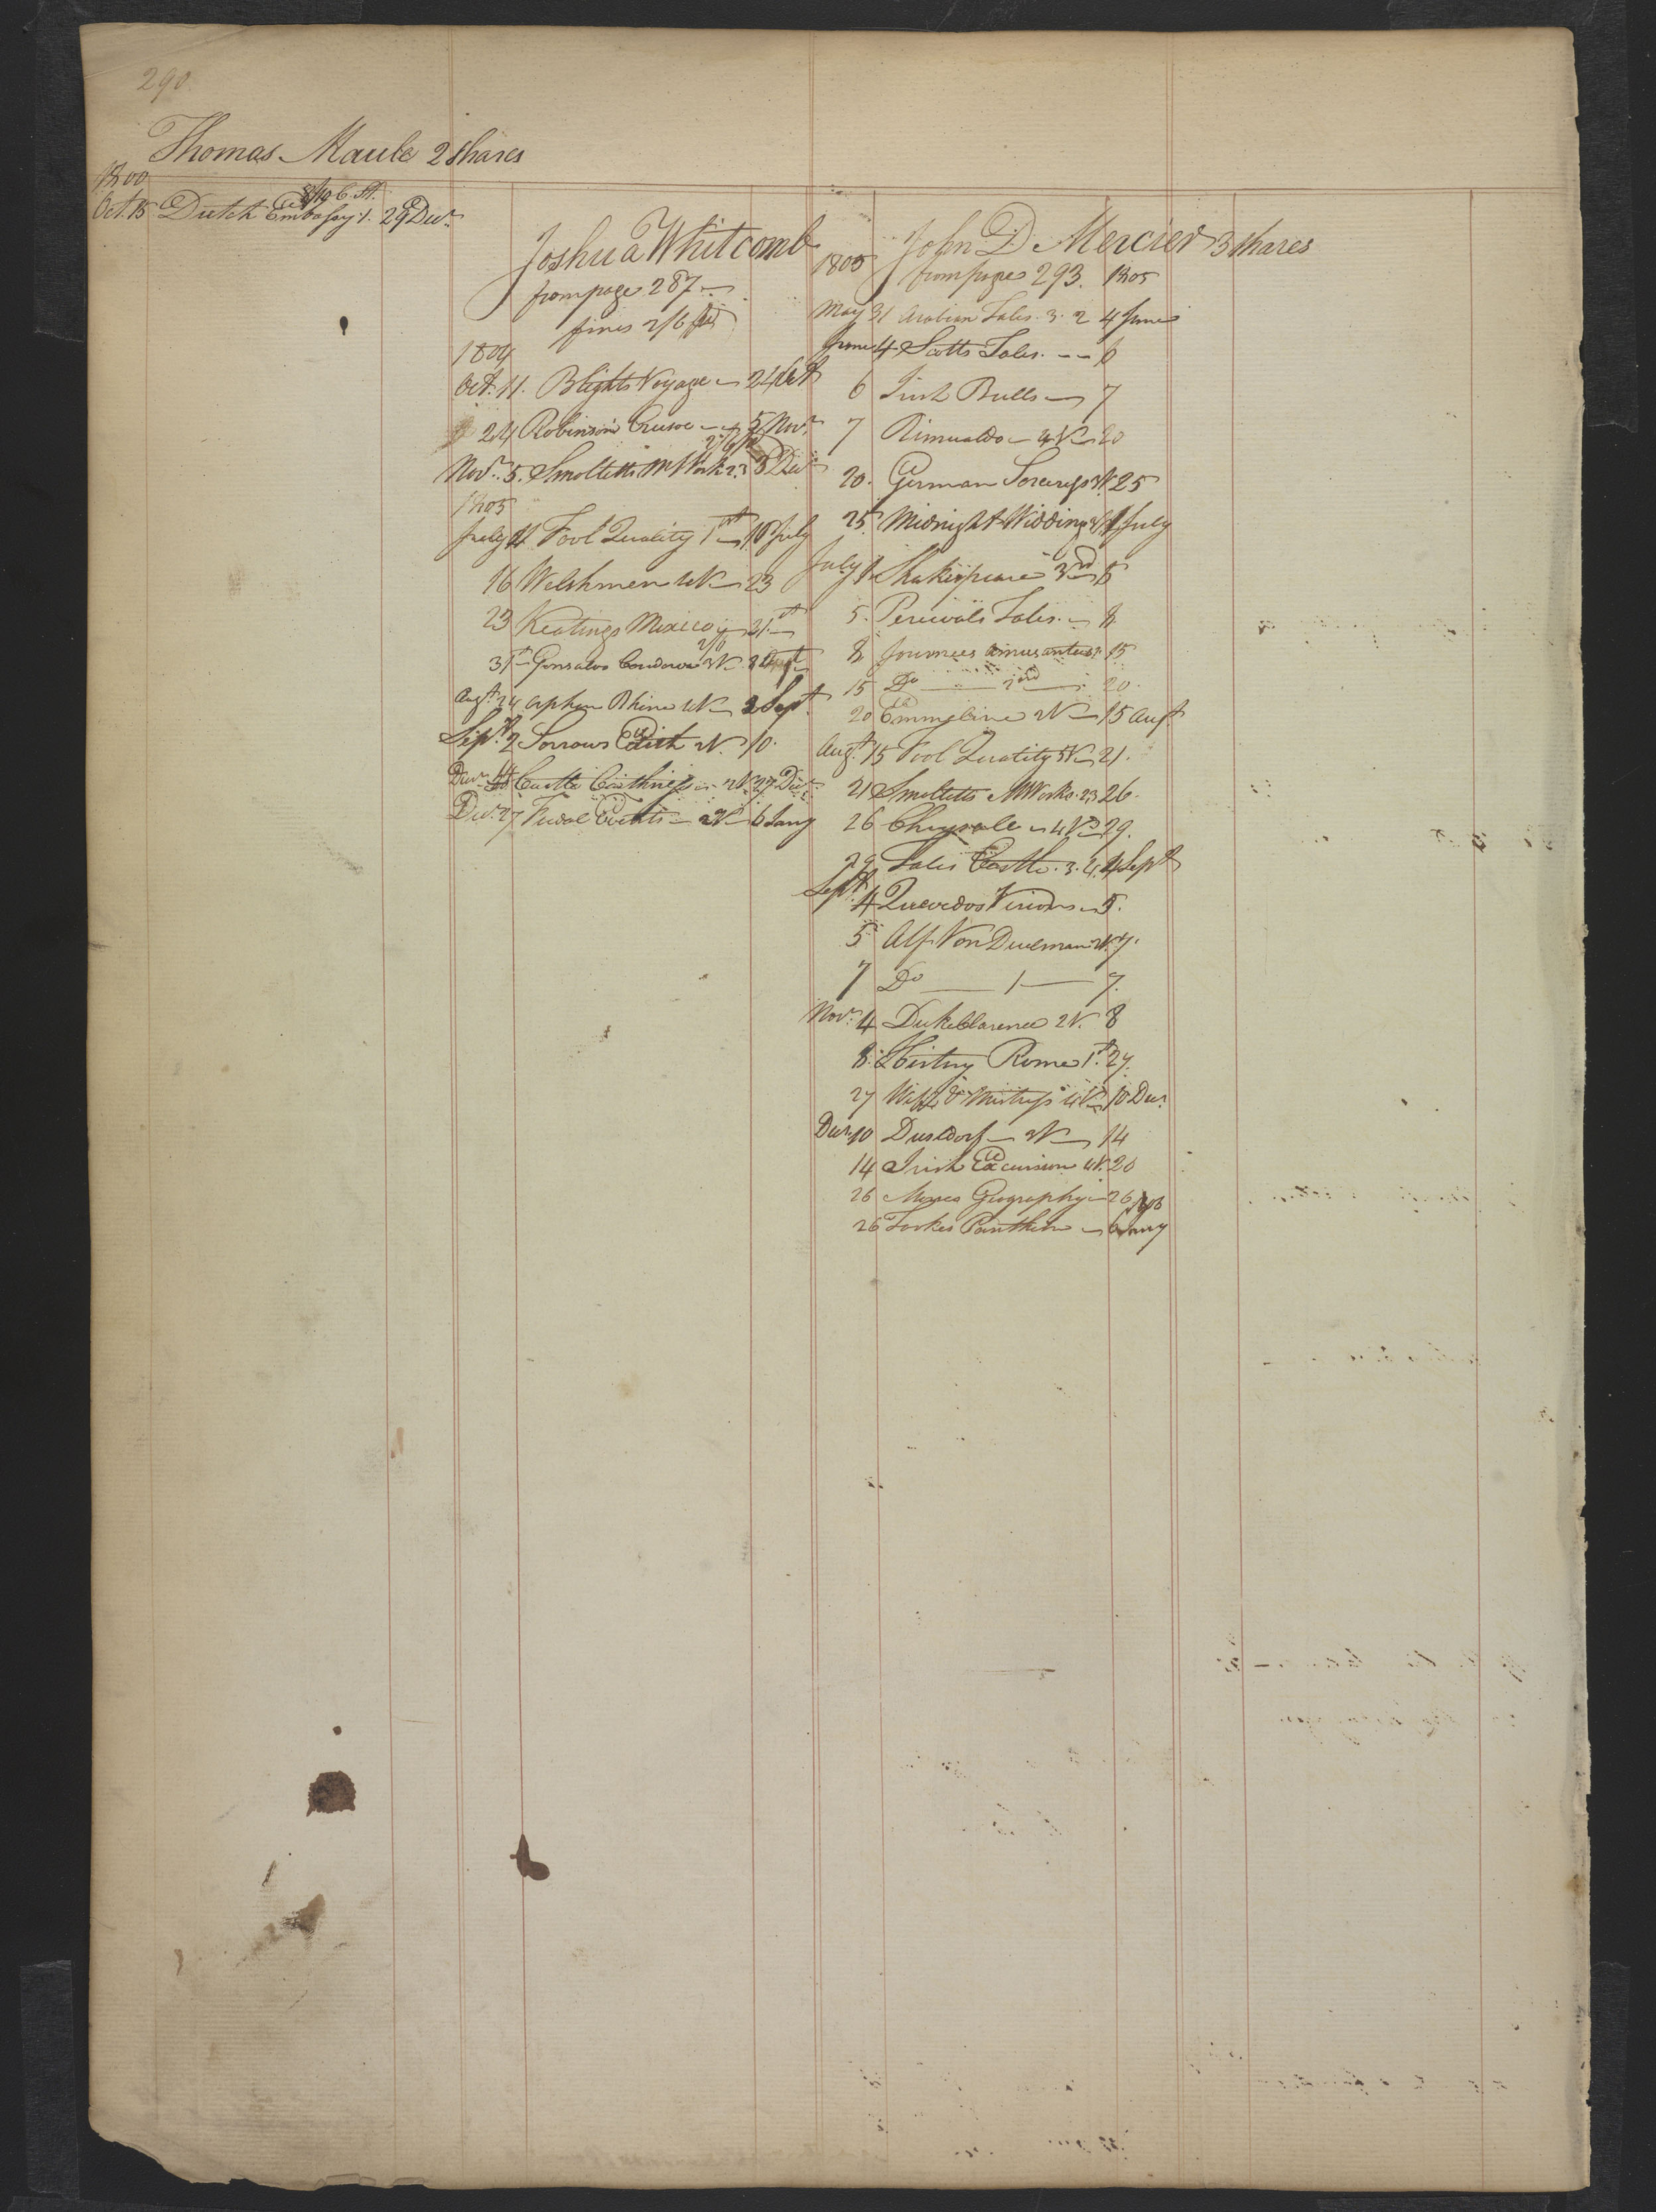 290
Thomas Maule 2 Shares
1800
8/10 C. St.
Oct. 15 Dutch Embassy 1. 29 Decr.
Joshua Whitcomb
from page 287
fines 2/6 pd
1804
Oct. 11. Blights Voyage 24 Oct
24 Robinson Crusoe 5 Novr.
2/6 pd
Novr. 5. Smolletts M Works 2.3 8 Decr
1805
July 11 Fool Quality 1st 16 July
16 Welshmen 4V 23
23 Keatings Mexico 31st
2/0
31st Gonsalvo Cordova 3V
Augt. 24 Orphan Rhine 4V 2 Sept.
Sept. 2 Sorrows Edith 2V. 10.
Decr. 14 Castle Caithness 2V. 27 Decr.
Decr. 27 Feudal Events 2V 6 Jany
John D Mercier 3 Shares
1805 from page 293. 1805
May 31 Arabian Tales. 3. 2 4 June
June 4 Scotts Tales. 6
6 Irish Bulls 7
7 Rimualdo 4V 20
20. German Sorceress 3V. 25
25 Midnight Wedding 1 July
July 1. Shakespeare 3rd 5
5. Percivals Tales. 8
8 Journees amusantes 1. 15
15 Do 2nd 20.
20 Emmeline 2V 15 Augt
Augt. 15 Fool Quality 5V 21.
21 Smolletts MWorks. 2.3 26.
26 Chrysale 4V 29.
29 Tales Castle. 3. 4. 4 Sept
Sept. 4 Quevedos Visions 5.
5 Alf Von Duelman 2V. 7.
7 Do 1 7.
Novr. 4 Duke Clarence 2V. 8
8. History Rome 1st. 27.
27 Wife & Mistress 4V 10 Decr.
Decr. 10 Dusseldorf 2V 14
14 Irish Excursion 4V. 20
26 Morses Geography 26
26 Tookes Pantheon 6 Jany